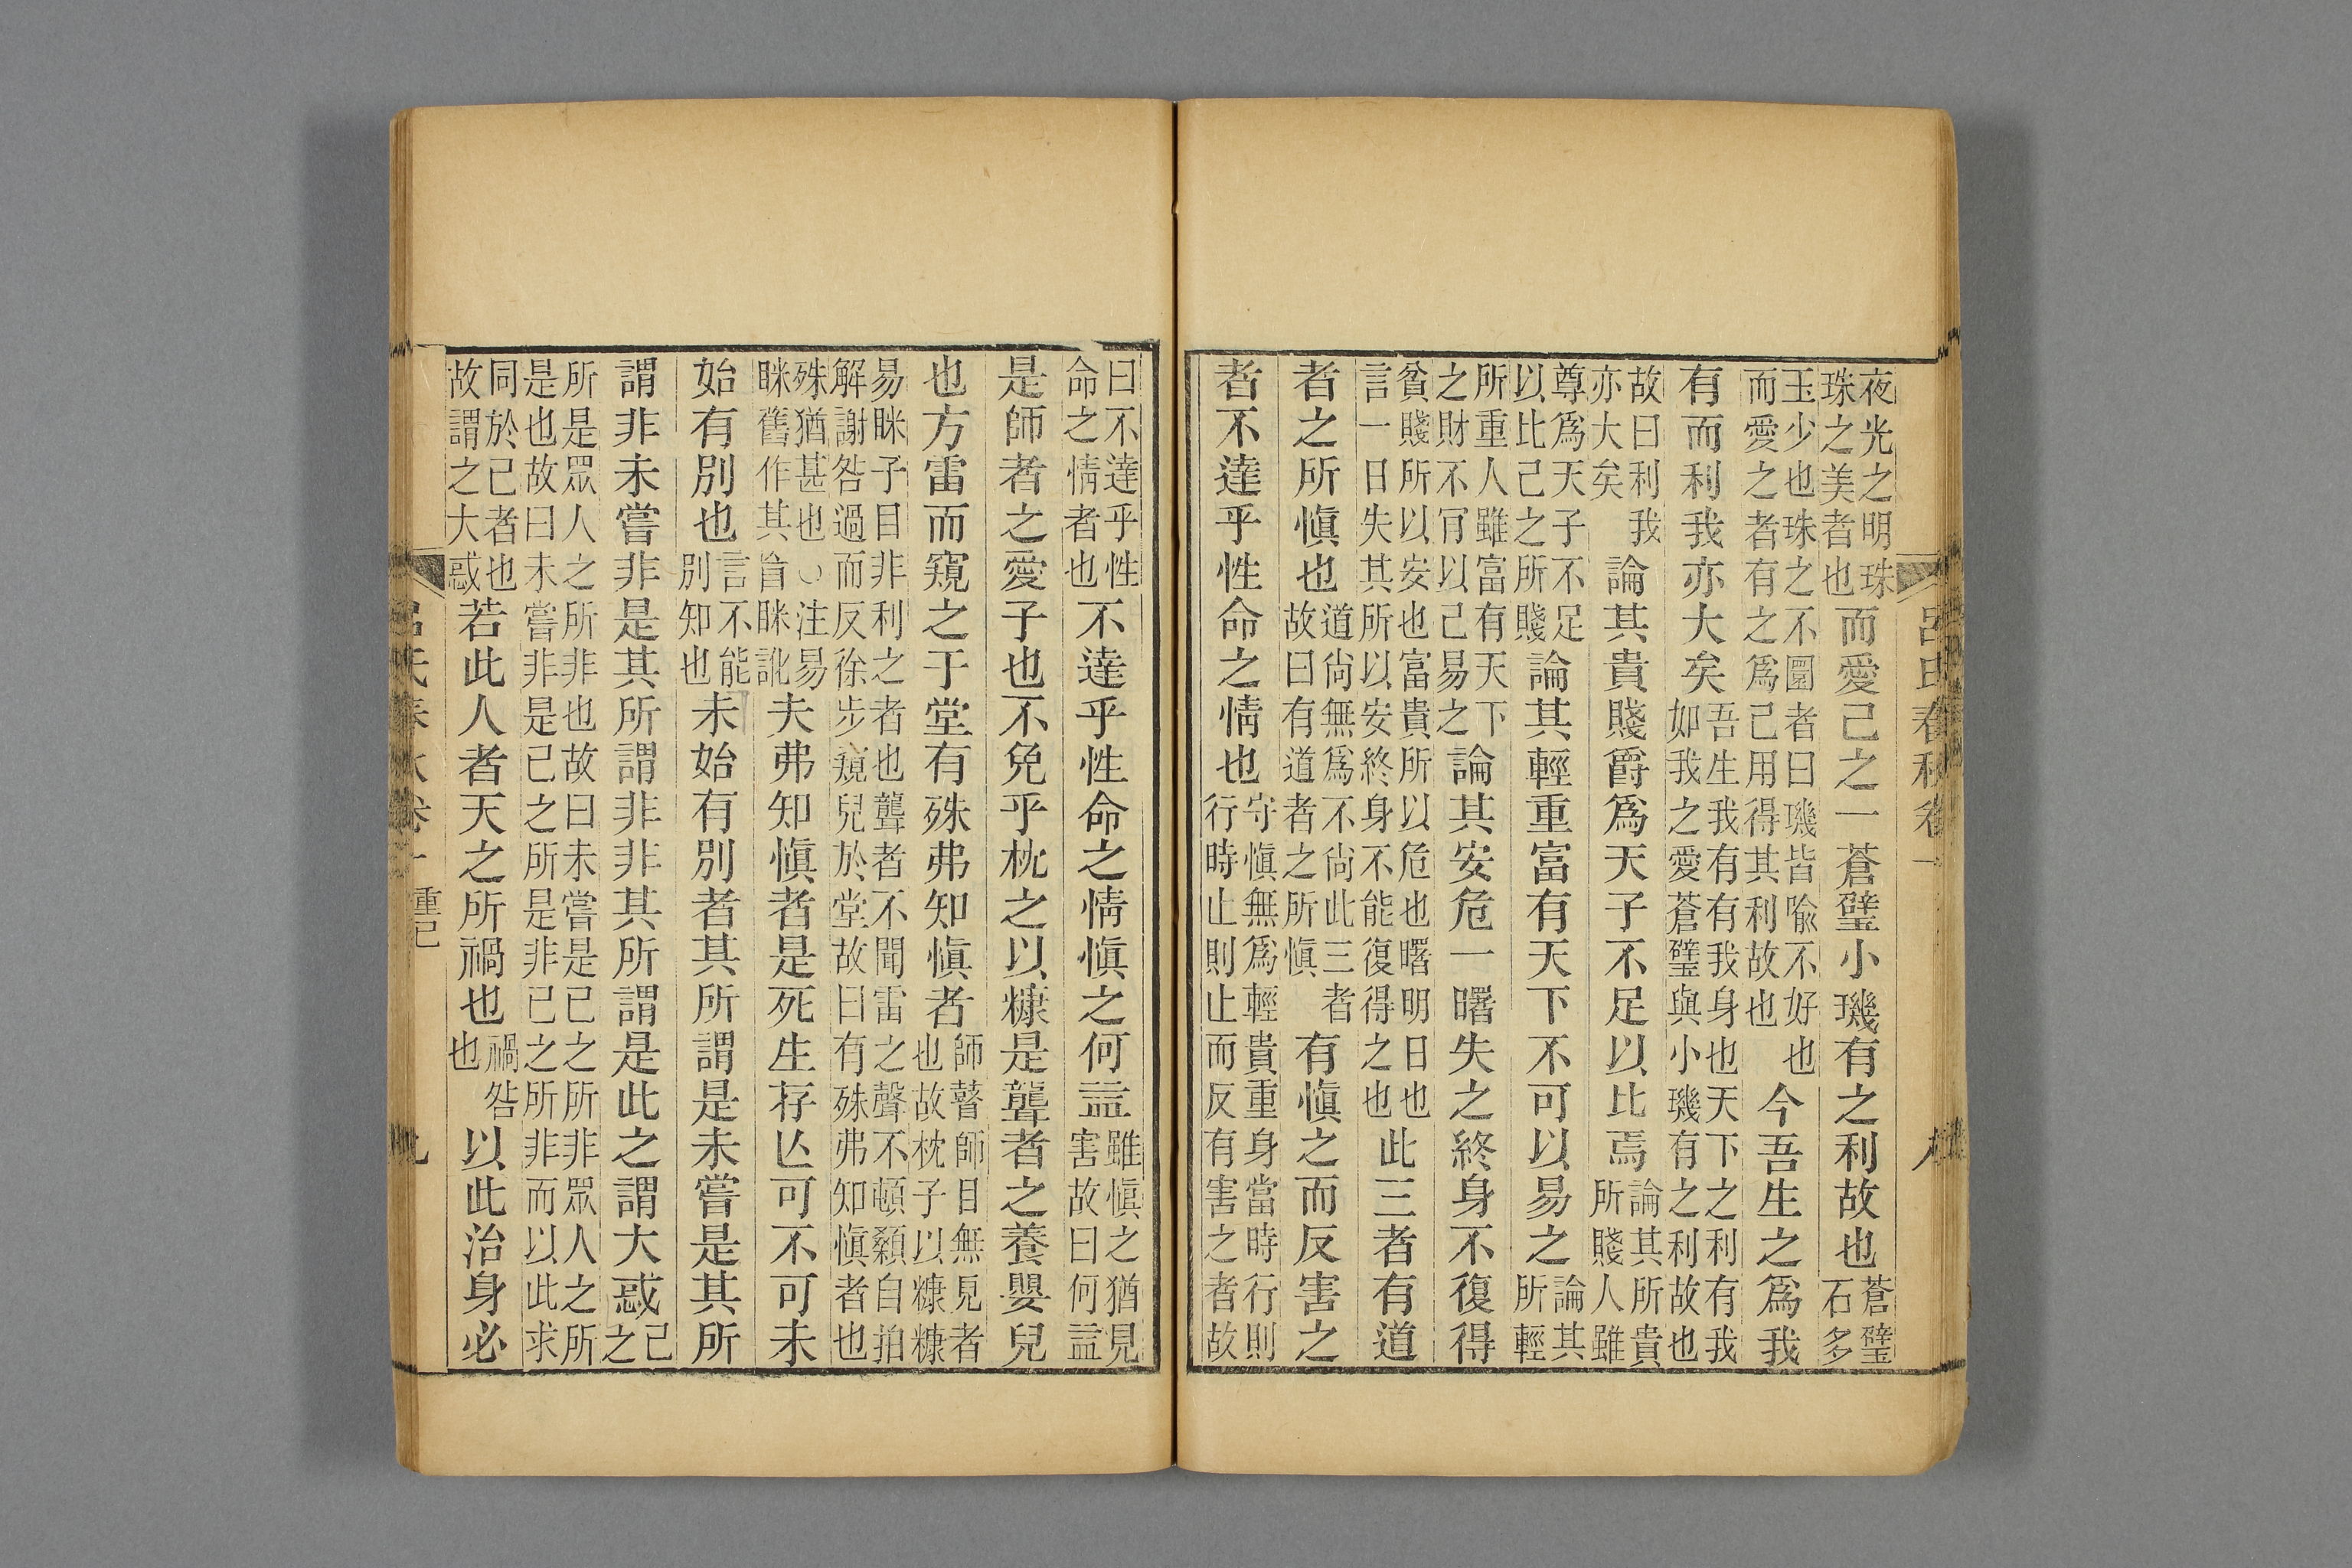 呂氏春秋卷一 八
夜光之明珠珠之美者也而愛己之一蒼璧小璣有之利故也蒼璧石多
玉少也珠之不圜者曰璣皆喻不好也而愛之者有之爲己用得其利故也今吾生之爲我
有而利我亦大矣吾生我有有我身也天下之利有我如我之愛蒼璧與小璣有之利故也
故曰利我亦大矣論其貴賤爵爲天子不足以比焉論其所貴所賤人雖
尊爲天子不足以比己之所賤論其輕重富有天下不可以易之論其所輕
所重人雖富有天下之財不肎以己易之論其安危一曙失之終身不復得
貧賤所以安也富貴所以危也曙明日也言一日失其所以安終身不能復得之也此三者有道
者之所愼也道尙無爲不尙此三者故曰有道者之所愼有愼之而反害之
者不達乎性命之情也守愼無爲輕貴重身當時行則行時止則止而反有害之者故
曰不達乎性命之情者也不達乎性命之情愼之何益雖愼之猶見害故曰何益
是師者之愛子也不免乎枕之以糠是聾者之養嬰兒
也方雷而窺之于堂有殊弗知愼者師瞽師目無見者也故枕子以糠糠
易眯子目非利之者也聾者不聞雷之聲不頓顙自拍解謝咎過而反徐步窺兒於堂故曰有殊弗知愼者也
殊猶甚也○注易眯舊作其旨眯訛夫弗知愼者是死生存亡可不可未
始有別也言不能別知也未始有別者其所謂是未嘗是其所
謂非未嘗非是其所謂非非其所謂是此之謂大惑己之
所是眾人之所非也故曰未嘗是己之所非眾人之所是也故曰未嘗非是己之所是非己之所非而以此求
同於己者也故謂之大惑若此人者天之所禍也禍咎也以此治身必
呂氏春秋卷一 重己 九